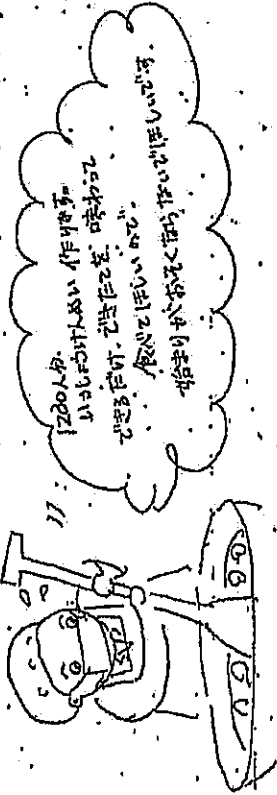 1200人分.
いっしょうけんめい作ります。
できるだけ、できたてを味わって
食べてほしいので、
始まりがおそくならないでほしいです。